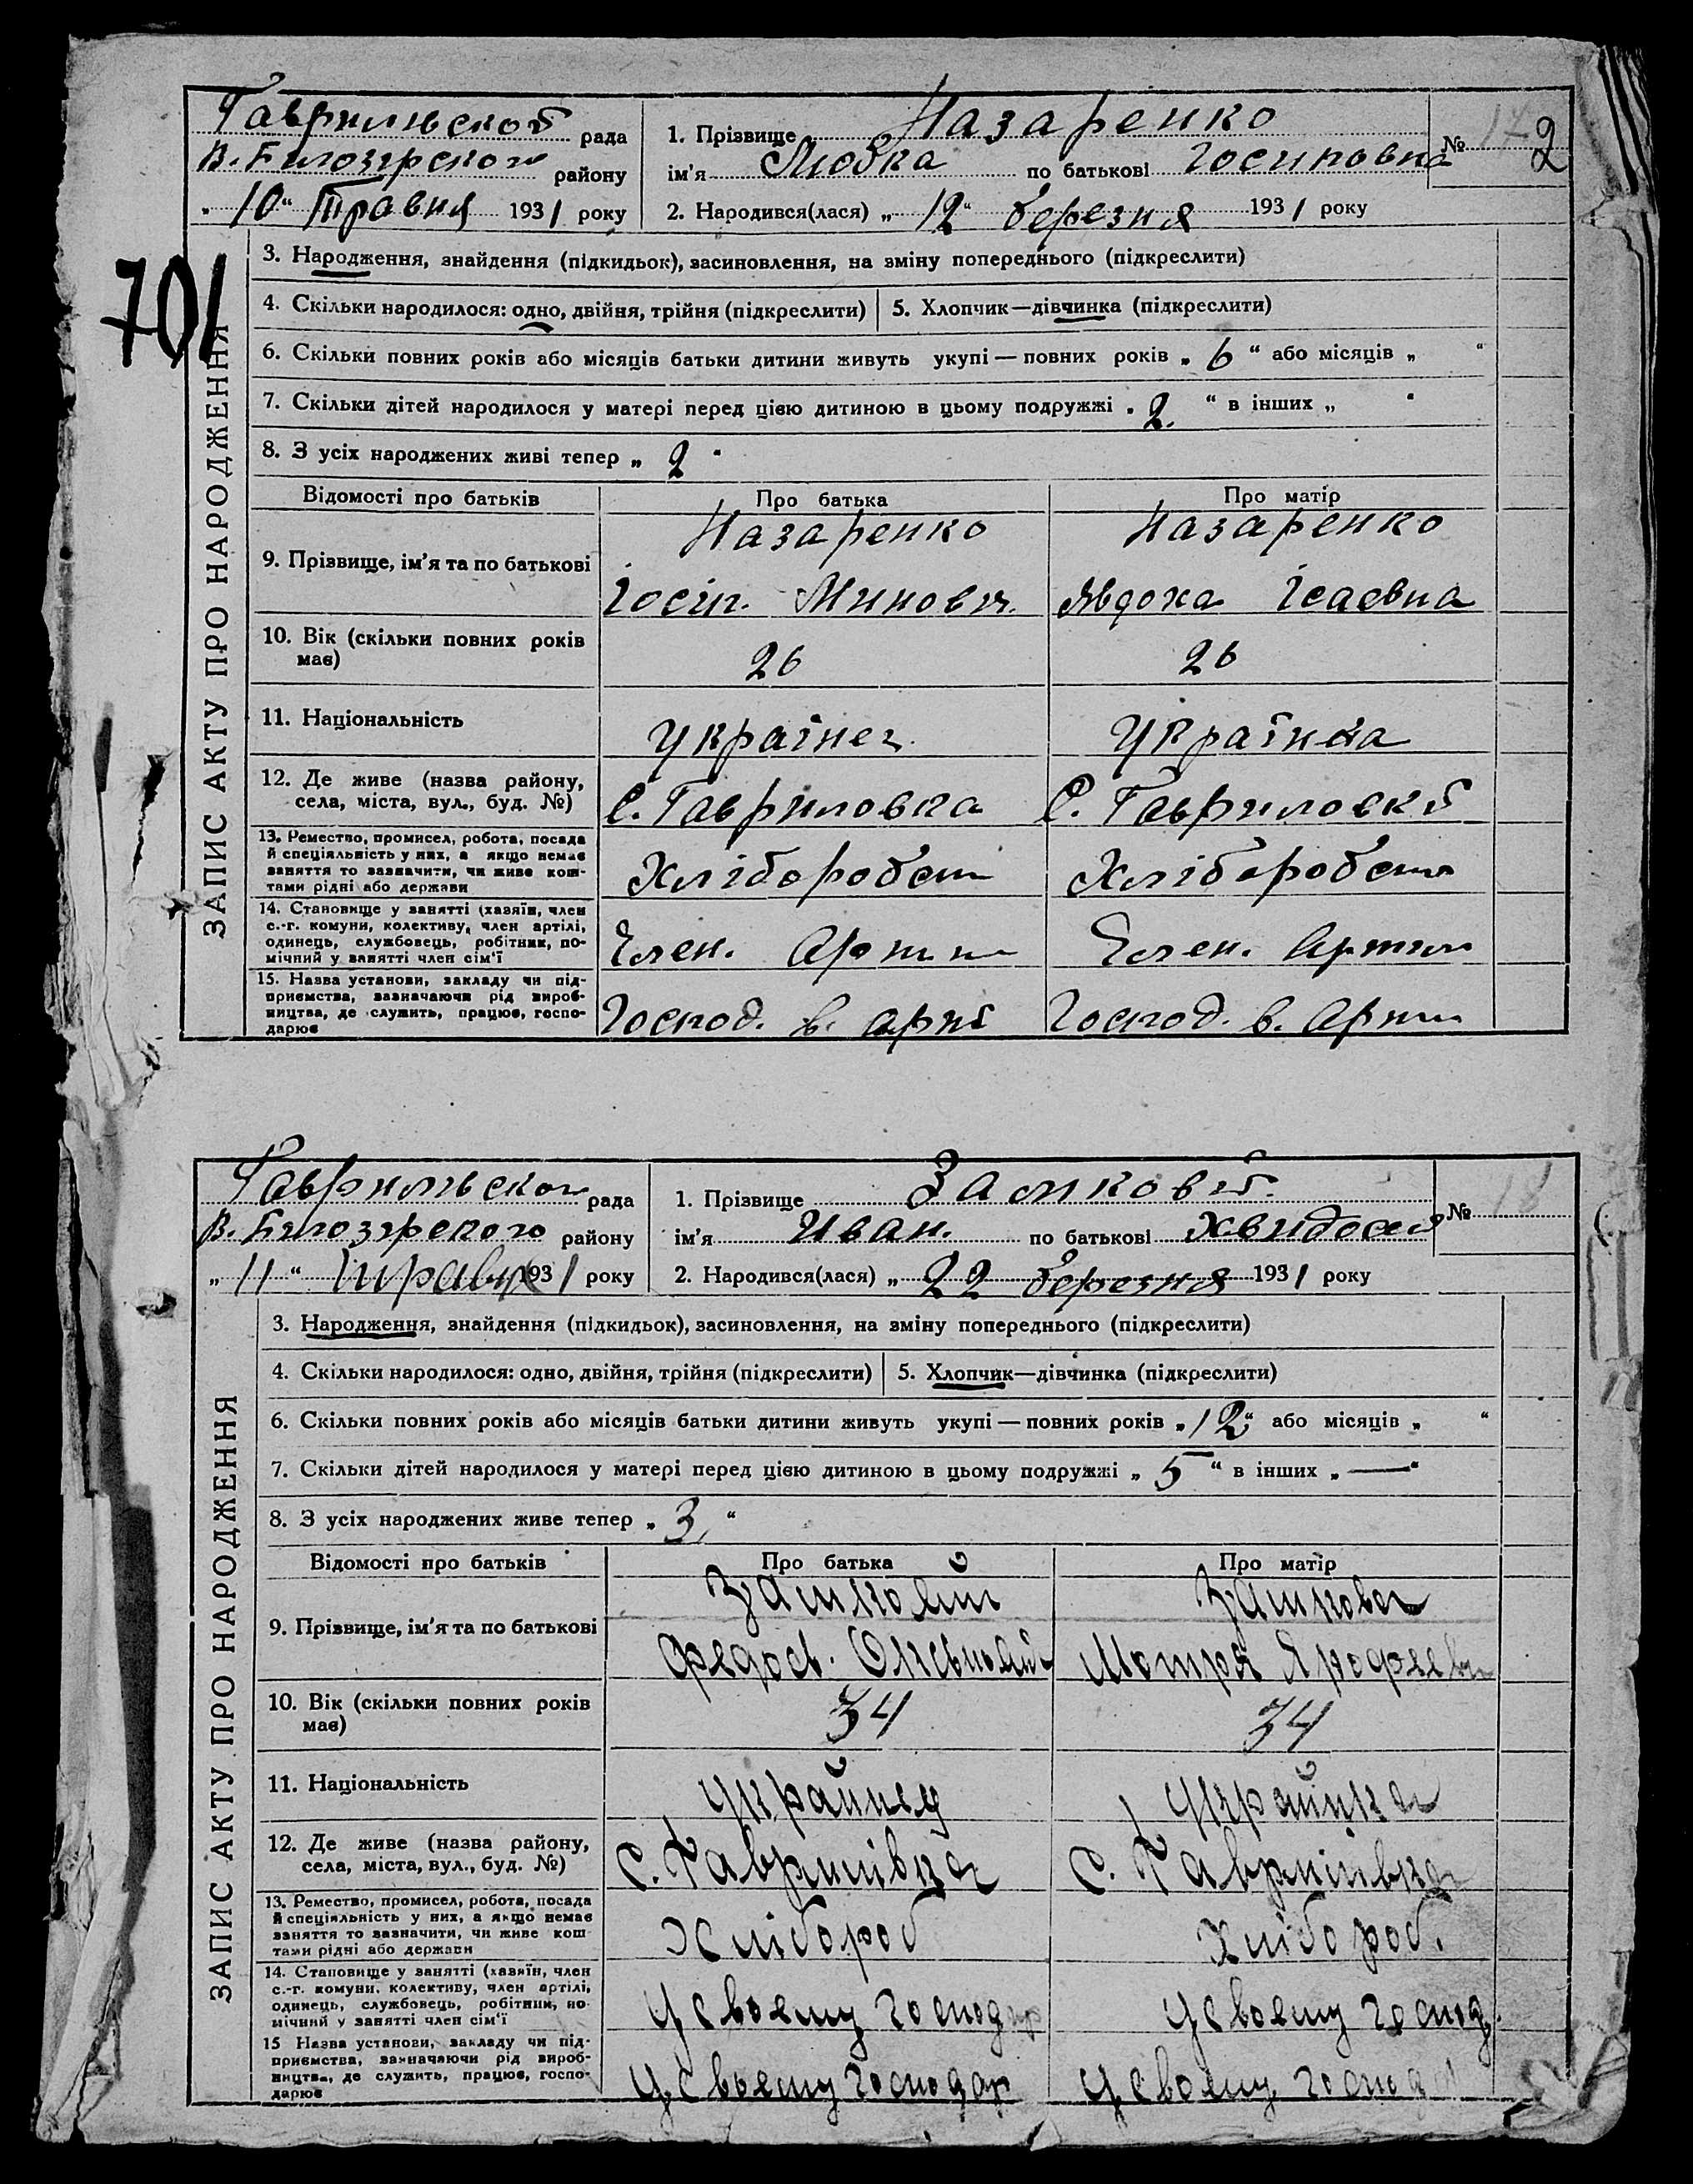 Гаврильской рада
В. Билозирского району
„10“ Травня 1931 року
1. Прізвище Назаренко
№ 17 2
ім'я Любка по батькові Іосиповна
2. Народився(лася) „12“ березня 1931 року
701
ЗАПИС АКТУ ПРО НАРОДЖЕННЯ
3. Народження, знайдення (підкидьок), засиновлення, на зміну попереднього (підкреслити)
4. Скільки народилося: одно, двійня, трійня (підкреслити) 5. Хлопчик—дівчинка (підкреслити)
6. Скільки повних років або місяців батьки дитини живуть укупі — повних років „6“ або місяців „ “
7. Скільки дітей народилося у матері перед цією дитиною в цьому подружжі „2.“ в інших „ “
8. З усіх народжених живі тепер „2“
Відомості про батьків Про батька Про матір
Назаренко Назаренко
9. Прізвище, ім'я та по батькові
Іосіп. Минович. Явдоха Ісаевна
10. Вік (скільки повних років
має) 26 26
11. Національність Українец. Українка
12. Де живе (назва району,
села, міста, вул., буд. №) С. Гавриловка С. Гавриловкі
13. Ремество, промисел, робота, посада
й спеціяльність у них, а якщо немає
заняття то зазначити, чи живе кош-
тами рідні або держави
Хліборобств Хліборобства
14. Становище у занятті (хазяїн, член
с.-г. комуни, колективу, член артілі,
одинець, службовець, робітник, по-
мічний у занятті член сім'ї
Член. Артили Член. Артили
15. Назва установи, закладу чи під-
приємства, зазначаючи рід вироб-
ництва, де служить, працює, госпо-
дарює
Господ. в. арті Господ. в. Арти
Гаврильского рада
В. Билозирского району
„11“ травня 1931 року
1. Прізвище Замковий.
№ 18
ім'я Иван. по батькові Хвидосия
2. Народився(лася) „22 березня 1931 року
ЗАПИС АКТУ ПРО НАРОДЖЕННЯ
3. Народження, знайдення (підкидьок), засиновлення, на зміну попереднього (підкреслити)
4. Скільки народилося: одно, двійня, трійня (підкреслити) 5. Хлопчик—дівчинка (підкреслити)
6. Скільки повних років або місяців батьки дитини живуть укупі — повних років „12“ або місяців „ “
7. Скільки дітей народилося у матері перед цією дитиною в цьому подружжі „5“ в інших „—“
8. З усіх народжених живе тепер „3“
Відомості про батьків Про батька Про матір
Замковий Замкова
9. Прізвище, ім'я та по батькові
Федось. Мотря
10. Вік (скільки повних років
має) 34 34
11. Національність Українец Украйнка
12. Де живе (назва району,
села, міста, вул., буд. №) с. Гаврилівка с. Гаврилівка
13. Ремество, промисел, робота, посада
й спеціяльність у них, а якщо немає
заняття то зазначити, чи живе кош-
тами рідні або держави
Хлібороб Хлібороб.
14. Становище у занятті (хазяїн, член
с.-г. комуни, колективу, член артілі,
одинець, службовець, робітник, по-
мічний у занятті член сім'ї
у своему господар у своему господ.
15 Назва установи, закладу чи під-
приємства, зазначаючи рід вироб-
ництва, де служить, працює, госпо-
дарює
у своему господар у своему господ